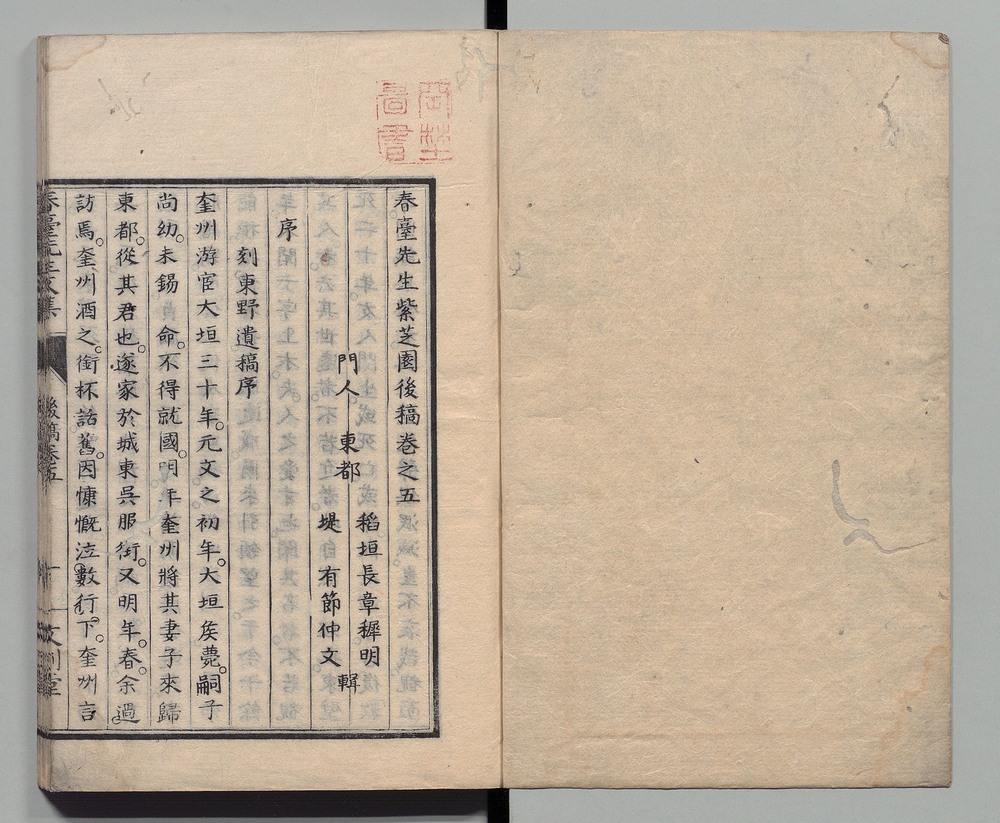 春臺先生紫芝園後稿卷之五
門人 東都 稻垣長章穉明
堤有節仲文 輯
序
刻東野遺稿序
奎州游宦大垣三十年元文之初年大垣矦薨嗣子
尚幼未錫命不得就國明年奎州將其妻子來歸
東都從其君也遂家於城東呉服街又明年春余過
訪焉奎州酒之銜杯話舊因慷慨泣數行下奎州言
後稿卷五
圖書